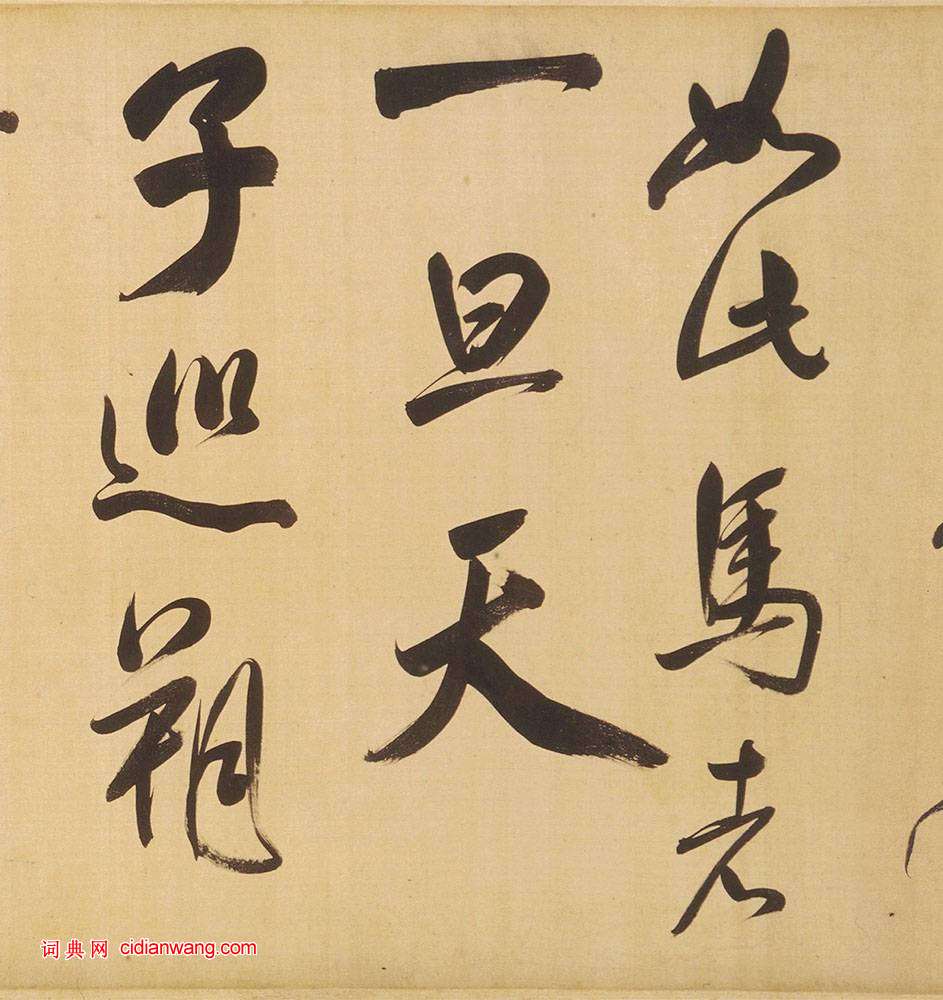 如此馬者
一旦天
子巡朔
词典网 cidianwang.com